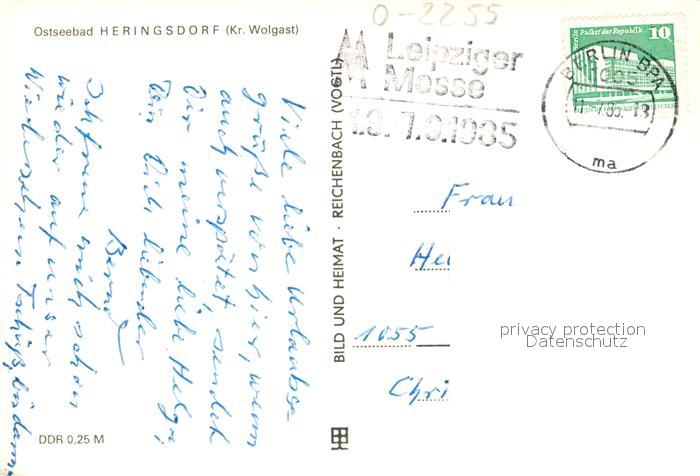 O-2255
Ostseebad HERINGSDORF (Kr. Wolgast)
Viele liebe Urlaubs-
grüße von hier, wenn
auch verspätet, sendet
Dir, meine liebe Helga,
Dein Dich liebender
Bernd
Ich freue mich schon
wieder auf unser
Wiedersehen. Tschüß, bis dann
DDR 0,25 M
BILD UND HEIMAT · REICHENBACH (VOGTL)
MM Leipziger
Messe
1.9.-7.9.1985
Berlin Palast der Republik 10
BERLIN BPA
1085
ma
Frau
1055
privacy protection
Datenschutz